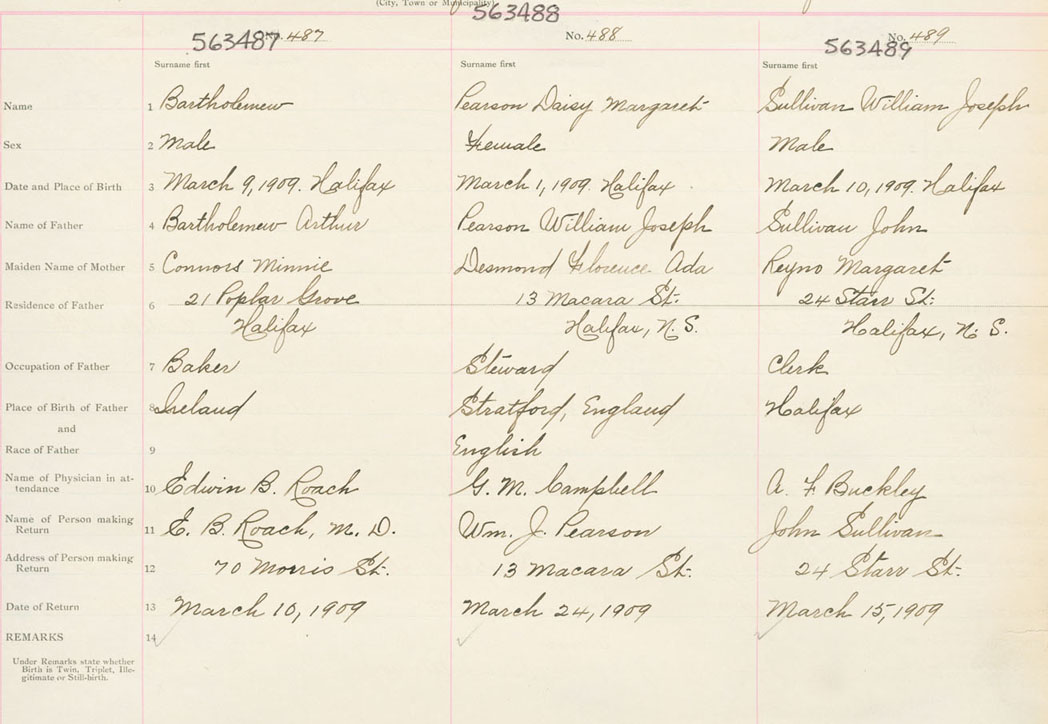 (City, Town or Municipality)
563488
563487 No. 487 No. 488 563489 No. 489
Surname first Surname first Surname first
Name 1 Bartholemew Pearson Daisy Margaret Sullivan William Joseph
Sex 2 Male Female Male
Date and Place of Birth 3 March 9, 1909. Halifax March 1, 1909. Halifax March 10, 1909. Halifax
Name of Father 4 Bartholemew Arthur Pearson William Joseph Sullivan John
Maiden Name of Mother 5 Connors Minnie Desmond Florence Ada Reyno Margaret
Residence of Father 6 21 Poplar Grove 13 Macara St. 24 Starr St.
Halifax Halifax, N. S. Halifax, N. S.
Occupation of Father 7 Baker Steward Clerk
Place of Birth of Father 8 Ireland Stratford, England Halifax
and
Race of Father 9 English
Name of Physician in at-
tendance 10 Edwin B. Roach G. M. Campbell A. F Buckley
Name of Person making
Return 11 E. B. Roach, M. D. Wm. J. Pearson John Sullivan
Address of Person making
Return 12 70 Morris St. 13 Macara St. 24 Starr St.
Date of Return 13 March 10, 1909 March 24, 1909 March 15, 1909
REMARKS 14
Under Remarks state whether
Birth is Twin, Triplet, Ille-
gitimate or Still-birth.